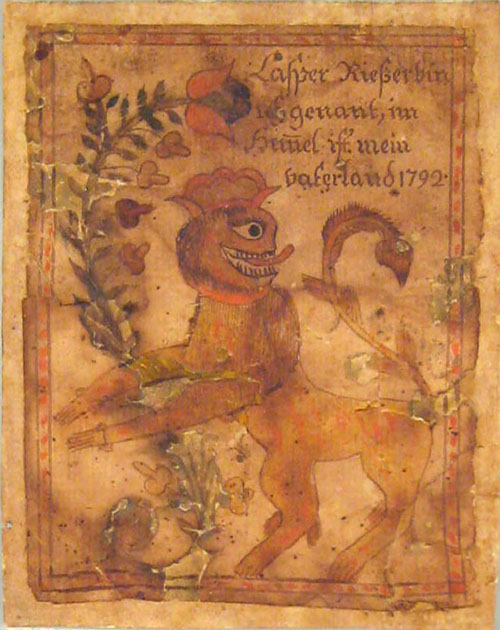 Casper Rießer bin
ich genant, im
Him̄el ist mein
vaterland 1792.